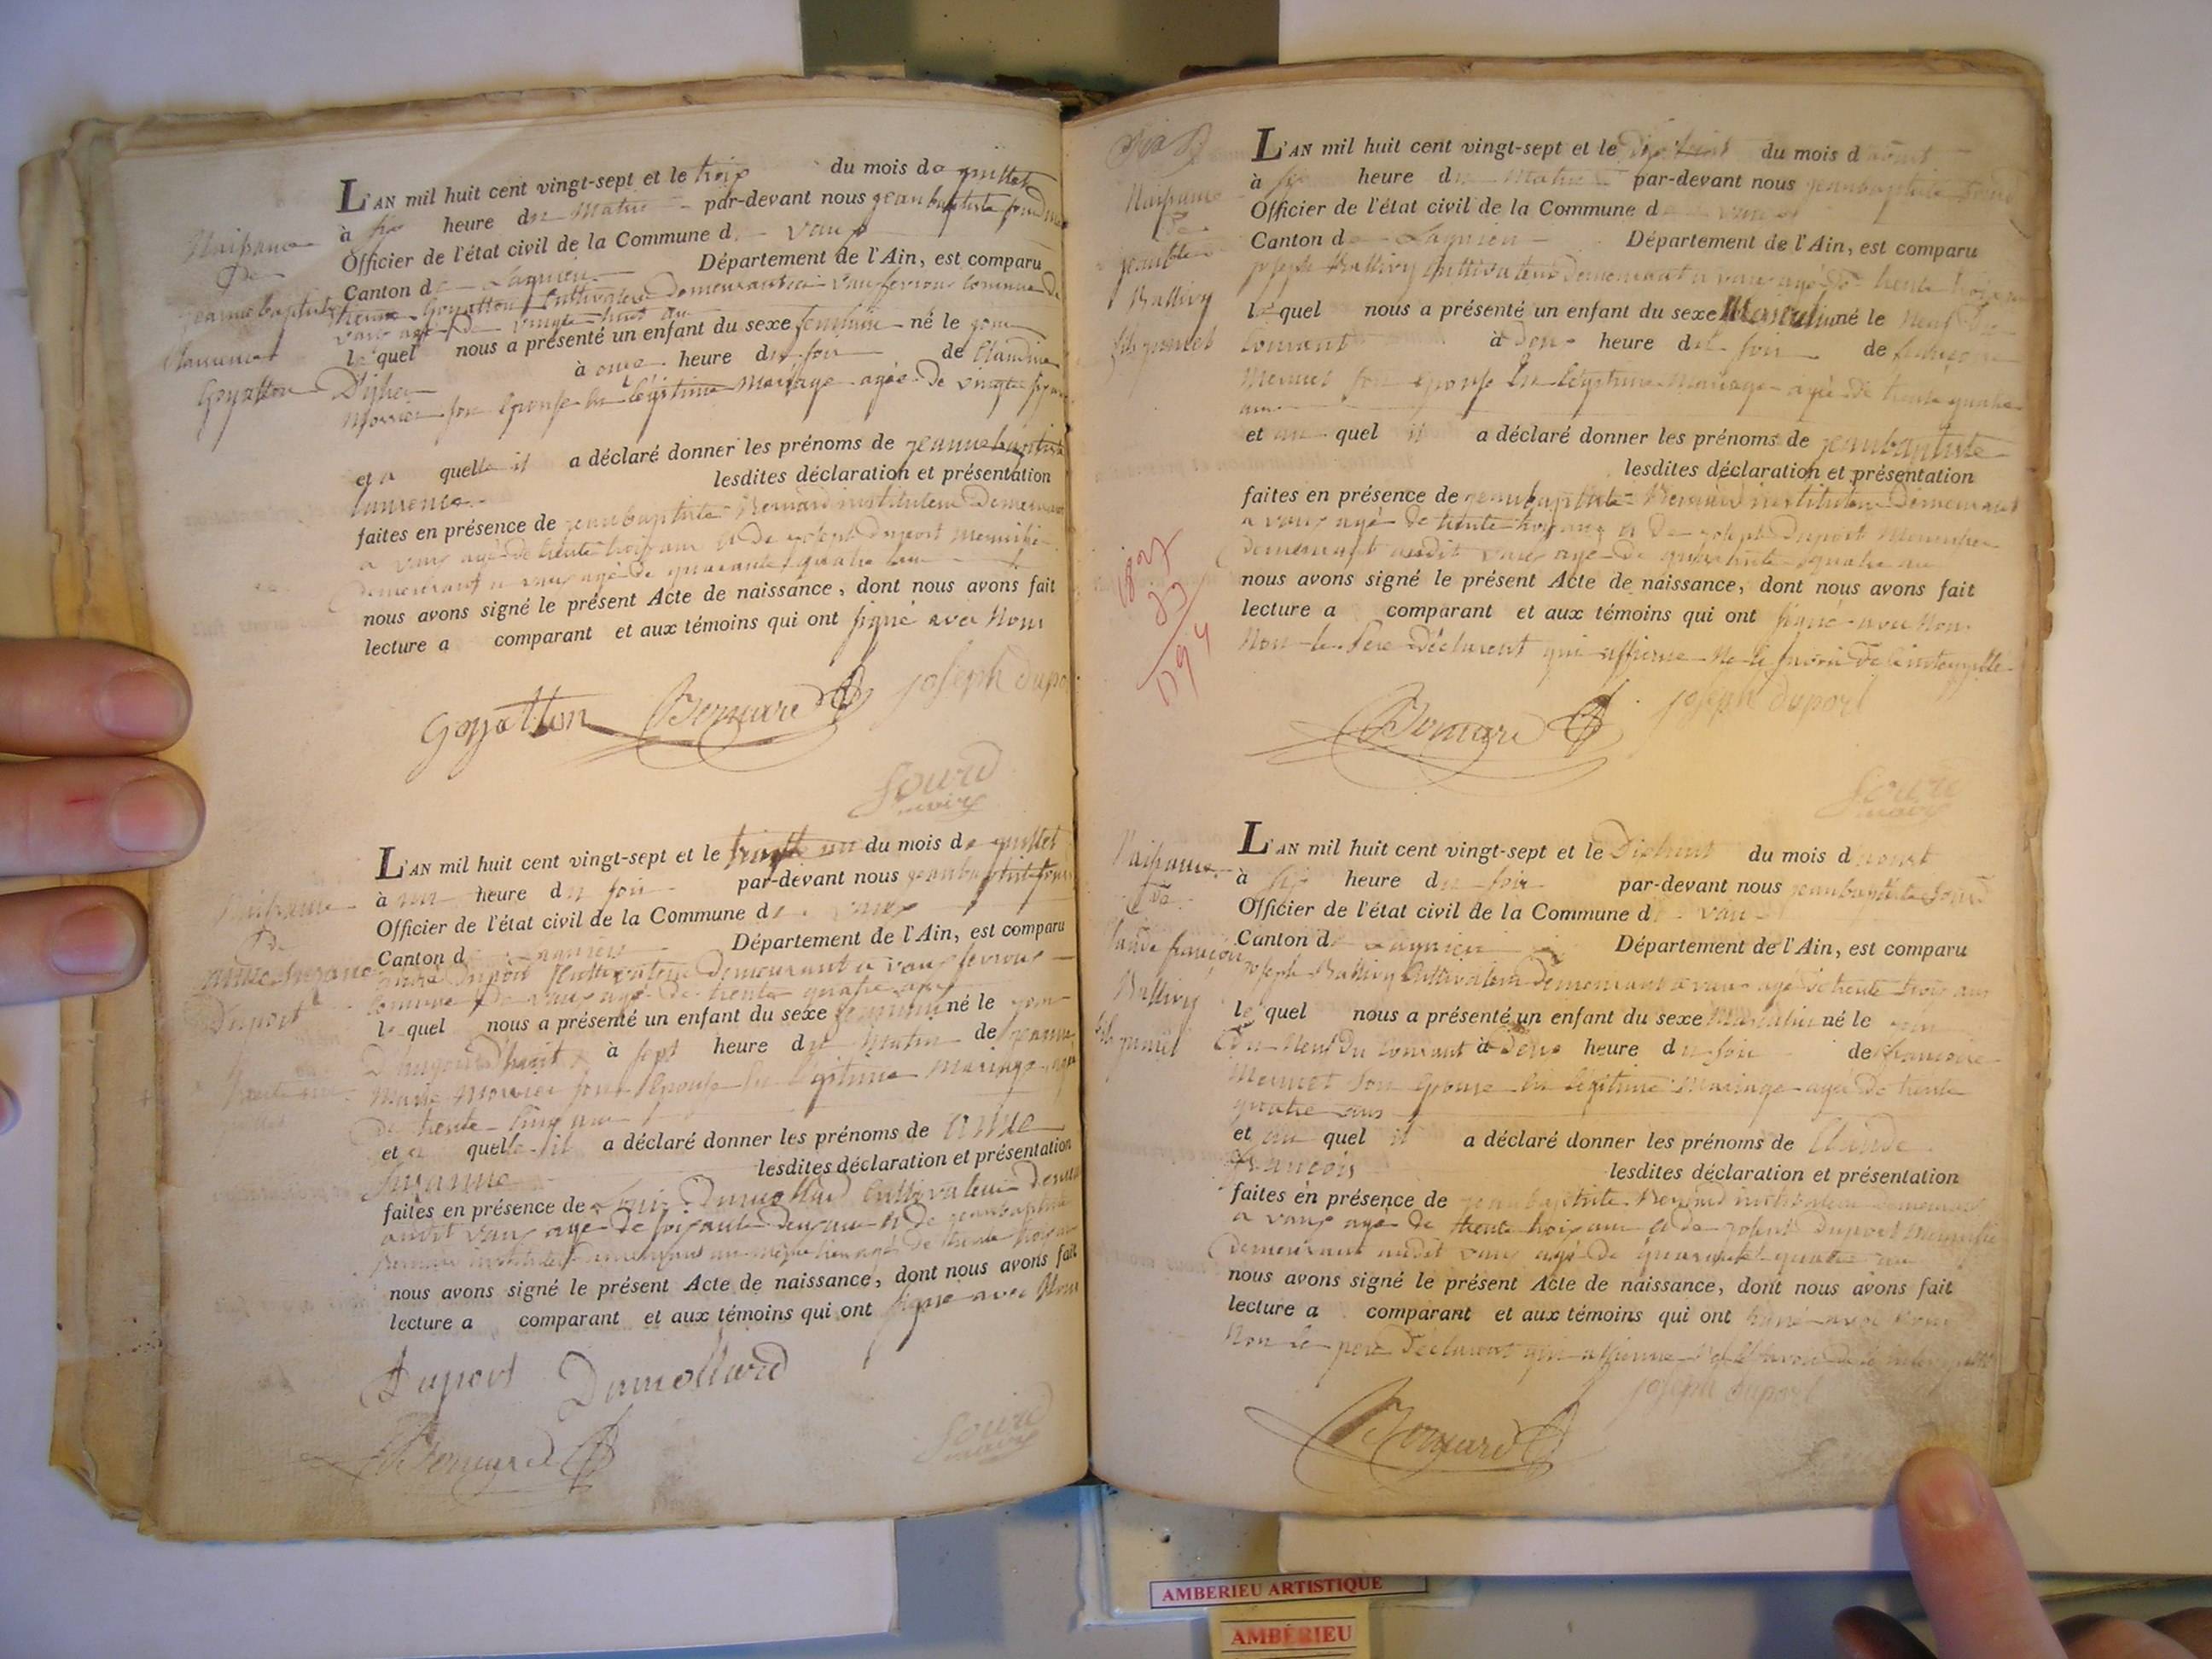 Naissance
De
jeannebaptiste
Laurence
Goyatton
L'AN mil huit cent vingt-sept et le trois du mois de juillet
à six heure du matin par-devant nous jeanbaptiste
Officier de l'état civil de la Commune d vaux
Canton de Lagnieu Département de l'Ain, est comparu
Goyatton Cultivateur demeurant a vaux fevroux commune de
vaux agé de vingt huit an
le quel nous a présenté un enfant du sexe feminin né le jour
D'hier à onze heure du soir de Claudine
Monnier son epouse en légitime Mariage agée de vingt
et a quelle il a déclaré donner les prénoms de jeannebaptiste
laurence lesdites déclaration et présentation
faites en présence de jeanbaptiste Bernard instituteur Demeurant
a vaux agé de trente trois ans et de joseph Duport Menuisier
demeurant a vaux agé de quarante quatre an
nous avons signé le présent Acte de naissance, dont nous avons fait
lecture a comparant et aux témoins qui ont signé avec Nous
Goyatton Bernard joseph duport
Sourd
maire
Naissance
de
anne Suzanne
Duport
L'AN mil huit cent vingt-sept et le trente un du mois de juillet
à un heure du soir par-devant nous jeanbaptiste
Officier de l'état civil de la Commune de vaux
Canton d Lagnieu Département de l'Ain, est comparu
andré Duport Cultivateur demeurant a vaux fevroux
commune de vaux agé de trente quatre ans
le quel nous a présenté un enfant du sexe feminin né le jour
D'hugourd'huit à sept heure du Matin de jeanne
Marie Monnier son Epouse en légitime Mariage agée
de trente cinq an
et a quelle il a déclaré donner les prénoms de anne
Suzanne lesdites déclaration et présentation
faites en présence de Louis Dumollard Cultivateur
audit vaux agé de soixante deux an et de jeanbaptiste
Bernard instituteur au même lieu agé de trente trois an
nous avons signé le présent Acte de naissance, dont nous avons fait
lecture a comparant et aux témoins qui ont signé avec Nous
Duport Dumollard
Bernard Sourd
maire
Naissance
de
jeanbte
Ballivy
fils jumel
1827
23
L'AN mil huit cent vingt-sept et le du mois d'aout
à six heure du Matin par-devant nous jeanbaptiste Sourd
Officier de l'état civil de la Commune d vaux
Canton de Lagnieu Département de l'Ain, est comparu
joseph Ballivy Cultivateur demeurant a vaux agé de trente trois an
le quel nous a présenté un enfant du sexe Masculin né le neuf du
Courant à deux heure du soir de françoise
Mermet son epouse en légitime Mariage agée de trente quatre
ans
et au quel il a déclaré donner les prénoms de jeanbaptiste
lesdites déclaration et présentation
faites en présence de jeanbaptiste Bernard instituteur Demeurant
a vaux agé de trente trois ans et de joseph Duport Menuisier
demeurant audit vaux agé de quarante quatre an
nous avons signé le présent Acte de naissance, dont nous avons fait
lecture a comparant et aux témoins qui ont signé avec Nous
Non le Pere Déclarent qui affirme ne le savoir de
Bernard joseph duport
Sourd
maire
Naissance
de
Claude françois
Ballivy
fils jumel
L'AN mil huit cent vingt-sept et le Dixhuit du mois d'aout
à six heure du soir par-devant nous jeanbaptiste Sourd
Officier de l'état civil de la Commune d vaux
Canton de Lagnieu Département de l'Ain, est comparu
joseph Ballivy Cultivateur demeurant a vaux agé de trente trois ans
le quel nous a présenté un enfant du sexe Masculin né le
du Neuf Du Courant à deux heure du soir de françoise
Mermet Son Epouse en légitime Mariage agée de trente
quatre ans
et au quel il a déclaré donner les prénoms de Claude
françois lesdites déclaration et présentation
faites en présence de jeanbaptiste Bernard instituteur demeurant
a vaux agé de trente trois ans et de joseph Duport Menuisier
demeurant audit vaux agé de quarante quatre an
nous avons signé le présent Acte de naissance, dont nous avons fait
lecture a comparant et aux témoins qui ont signé avec Nous
Non le pere Déclarent qui affirme
joseph duport
Bernard
AMBERIEU ARTISTIQUE
AMBÉRIEU